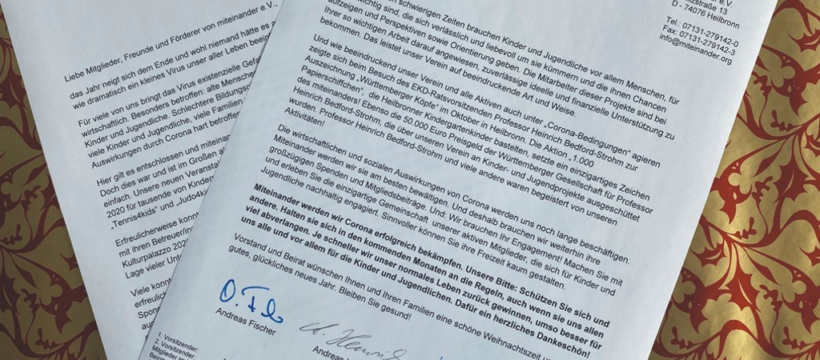 Liebe Mitglieder, Freunde und Förderer von miteinander e.V.,
das Jahr neigt sich dem Ende und wohl niemand hätte es
wie dramatisch ein kleines Virus unser aller Leben
Für viele von uns bringt das Virus existenzielle
wirtschaftlich. Besonders betroffen: alte Menschen
Kinder und Jugendliche. Schlechtere
viele Kinder und Jugendliche, viele Familien
Auswirkungen durch Corona hart betroffen
Hier gilt es entschlossen und
Doch dies war und ist im Großen
einfach. Unsere neuen
2020 für tausende von Kinder
„Tennis4kids“ und
Erfreulicherweise
mit ihren
Kulturpalazzo
Lage vieler
Viele
schwierigen Zeiten brauchen Kinder und Jugendliche vor allem Menschen, für
wichtig sind, die sich verlässlich und liebevoll um sie kümmern und die ihnen Chancen
aufzeigen und Perspektiven sowie Orientierung geben. Die Mitarbeiter dieser Projekte sind bei
ihrer so wichtigen Arbeit darauf angewiesen, zuverlässige ideelle und finanzielle Unterstützung zu
bekommen. Das leistet unser Verein auf beeindruckende Art und Weise.
Und wie beeindruckend unser Verein und alle Aktiven auch unter „Corona-Bedingungen“ agieren
zeigte sich beim Besuch des EKD-Ratsvorsitzenden Professor Heinrich Bedford-Strohm zur
Auszeichnung „Württemberger Köpfe“ im Oktober in Heilbronn. Die Aktion „1.000
Papierschiffchen“, die Heilbronner Kindergartenkinder bastelten, setzte ein einzigartiges Zeichen
des miteinanders! Ebenso die 50.000 Euro Preisgeld der Württemberger Gesellschaft für Professor
Heinrich Bedford-Strohm, die über unseren Verein an Kinder- und Jugendprojekte ausgeschüttet
wurden. Professor Heinrich Bedford-Strohm und viele andere waren begeistert von unseren
Aktivitäten!
Die wirtschaftlichen und sozialen Auswirkungen von Corona werden uns noch lange beschäftigen.
Miteinander werden wir sie am besten bewältigen. Und deshalb brauchen wir weiterhin Ihre
großzügigen Spenden und Mitgliedsbeiträge. Und: Wir brauchen Ihr Engagement! Machen Sie mit
und erleben Sie die einzigartige Gemeinschaft unserer aktiven Mitglieder, die sich für Kinder und
Jugendliche nachhaltig engagiert. Sinnvoller können Sie Ihre Freizeit kaum gestalten.
Miteinander werden wir Corona erfolgreich bekämpfen. Unsere Bitte: Schützen Sie sich und
andere. Halten Sie sich in den kommenden Monaten an die Regeln, auch wenn sie uns allen
viel abverlangen. Je schneller wir unser normales Leben zurück gewinnen, umso besser für
uns alle und vor allem für die Kinder und Jugendlichen. Dafür ein herzliches Dankeschön!
Vorstand und Beirat wünschen Ihnen und Ihren Familien eine schöne Weihnachtszeit
gutes, glückliches neues Jahr. Bleiben Sie gesund!
Andreas Fischer
1. Vorsitzender:
2. Vorsitzende:
D - 74076 Heilbronn
Tel.: 07131-279142-0
Fax: 07131-279142-3
info@miteinander.org